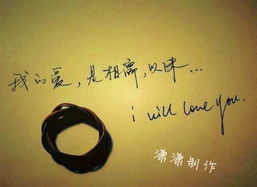 我的爱，是相离，以沫...
i will love you.
潇潇制作